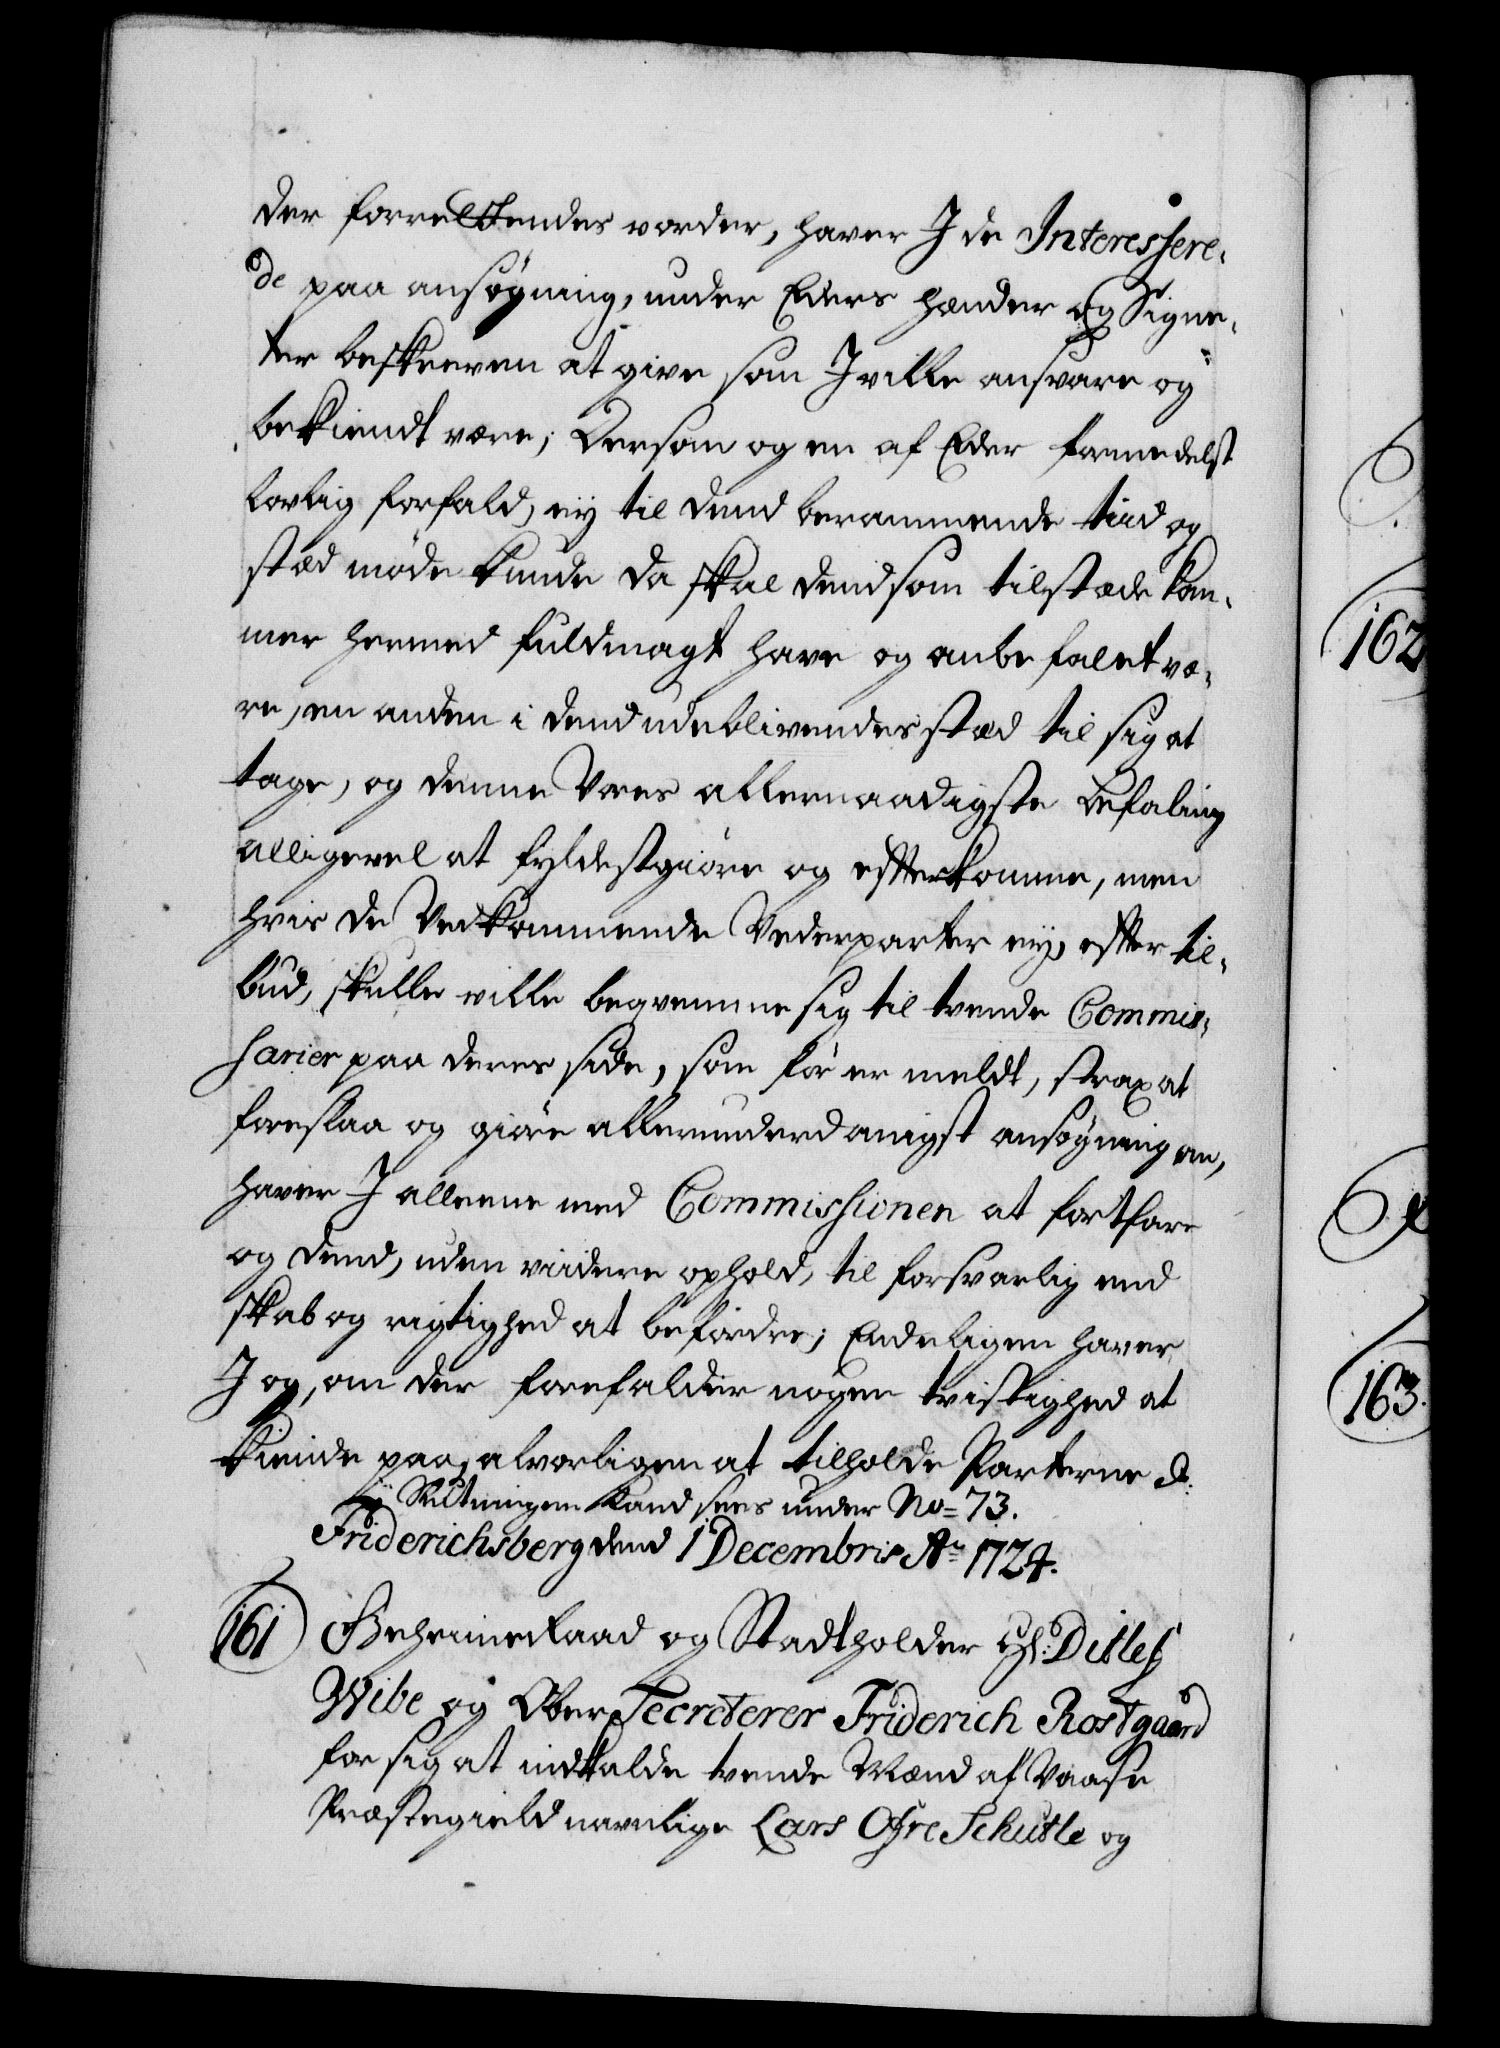 der forrettendes vorder, haver I de Interessere-
de paa ansøgning, under Eders Hænder og Signe-
ter beskreven at give som I ville ansvare og
bekiendt være; Dersom og en af Eder formedelst
lovlig forfald, eij til dend berammende tiid og
stæd møde kunde da skal dend som tilstæde kom-
mer hermed fuldmagt have og anbefalet væ-
re, en anden i dend udeblivendes stæd til sig at
tage, og denne Vores allernaadigste Befaling
alligevel at fyldestgiøre og efterkomme, men
hvis de Vedkommende Vederparter eij, efter til-
bud, skulle ville beqvemme sig til tvende Commis-
sarier paa deres side, som før er meldt, strax at
foreslaa og giøre allerunderdanigst ansøgning om,
haver I alleene med Commissionen at fortfare
og dend, uden viidere ophold, til forsvarlig end
skab og rigtighed at befordre; Endeligen haver
I og, om der forefalder nogen tvistighed at
kiende paa, alvorligen at tilholde Parterne &:
Slutningen kand sees under No= 73.
Friderichsberg dend 1 Decembris Ao 1724.
161 Geheimeraad og Stadtholder Hr: Ditlef
Wibe og Ober Secreterer Friderich Rostgaard
for sig at indkalde tvende Mænd af Vaase
Præstegield navnlige Lars Ofre Schutle og
162
163.